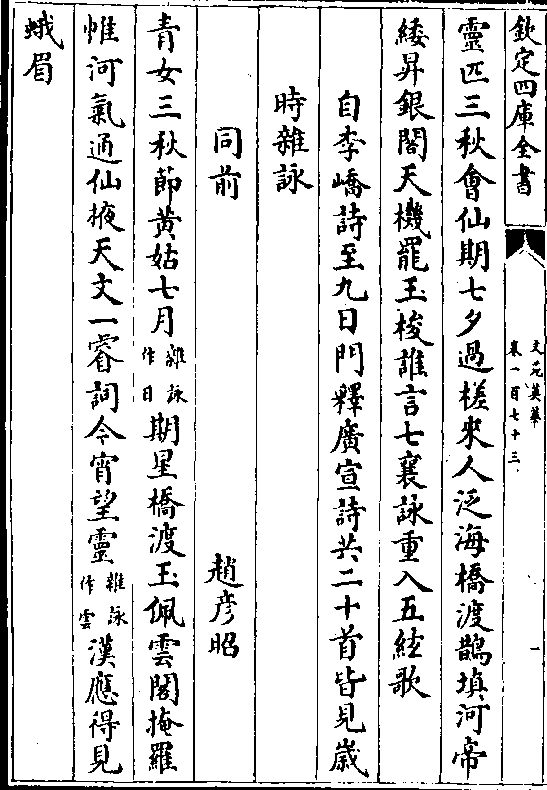 欽定四庫全書
文苑英華
卷一百七十三
一
靈匹三秋會仙期七夕過槎來人泛海橋渡鵲填河帝
綾昇銀閣天機罷玉梭誰言七襄詠重入五絃歌
自李嶠詩至九日門釋廣宣詩共二十首皆見歲
時雜詠
同前
趙彥昭
青女三秋節黃姑七月雜詠作日期星橋渡玉佩雲閣掩羅
帷河氣通仙掖天文一睿詞今宵望靈雜詠作雲漢應得見
蛾眉